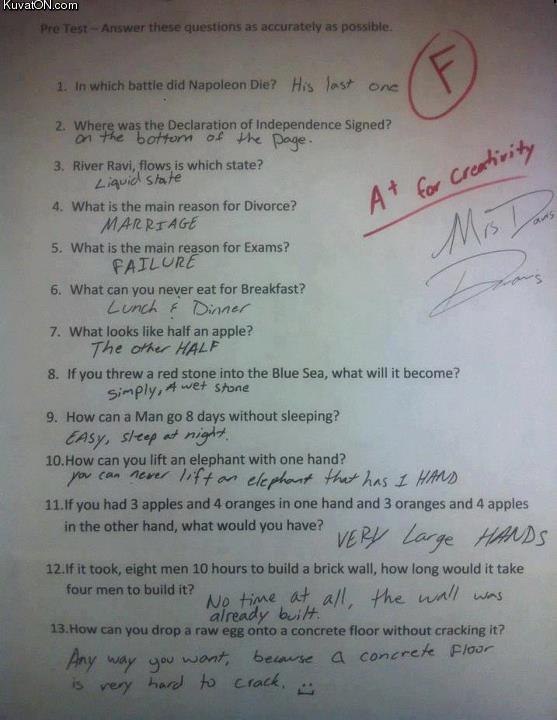 KuvatON.com
Pre Test – Answer these questions as accurately as possible.
F
1. In which battle did Napoleon Die? His last one
2. Where was the Declaration of Independence Signed?
on the bottom of the page.
3. River Ravi, flows is which state?
Liquid state
A+ for Creativity
4. What is the main reason for Divorce?
MARRIAGE
Mrs Davis
5. What is the main reason for Exams?
FAILURE
6. What can you never eat for Breakfast?
Lunch & Dinner
7. What looks like half an apple?
The other HALF
8. If you threw a red stone into the Blue Sea, what will it become?
simply, A wet stone
9. How can a Man go 8 days without sleeping?
EASY, sleep at night.
10.How can you lift an elephant with one hand?
you can never lift an elephant that has 1 HAND
11.If you had 3 apples and 4 oranges in one hand and 3 oranges and 4 apples
in the other hand, what would you have? VERY Large HANDS
12.If it took, eight men 10 hours to build a brick wall, how long would it take
four men to build it? No time at all, the wall was
already built.
13.How can you drop a raw egg onto a concrete floor without cracking it?
Any way you want, because a concrete floor
is very hard to crack.